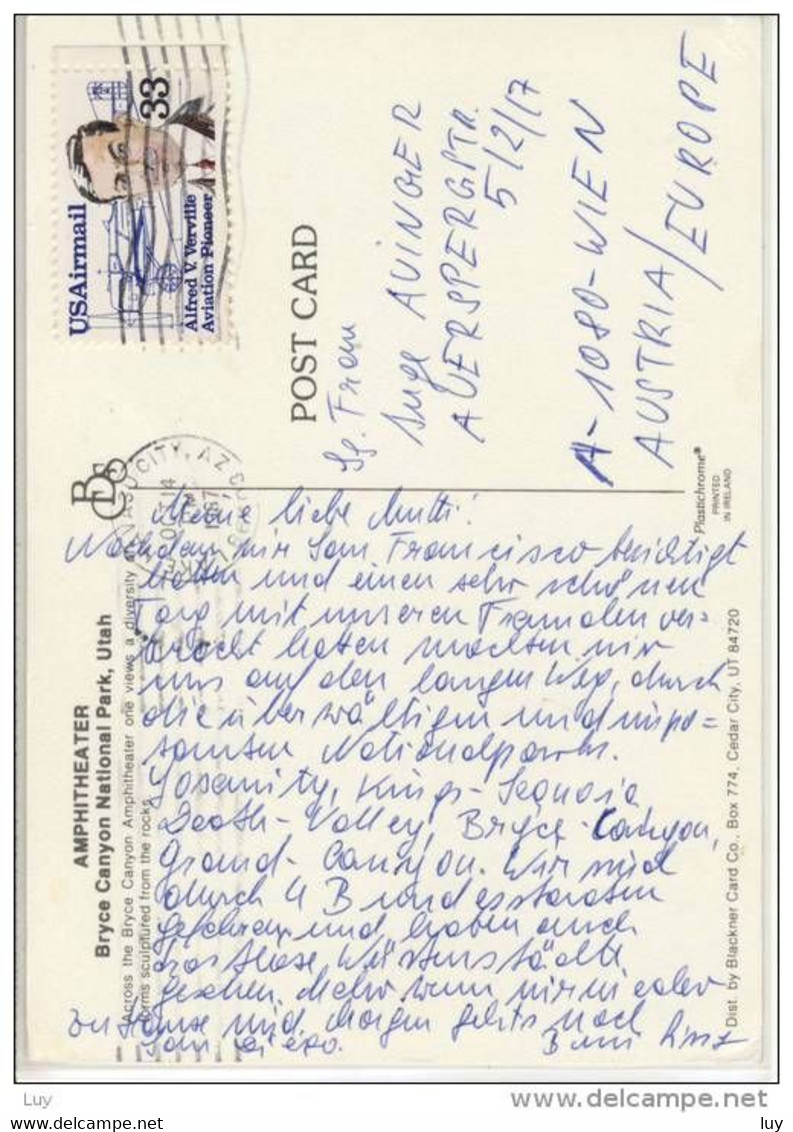 USAirmail
33
Alfred V. Verville
Aviation Pioneer
POST CARD
Frau
Inge AVINGER
AUERSPERGSTR.
5/2/17
A-1080-WIEN
AUSTRIA/EUROPE
CITY, AZ
1987
Plastichrome®
PRINTED
IN IRELAND
AMPHITHEATER
Bryce Canyon National Park, Utah
Across the Bryce Canyon Amphitheater one views a diversity of
forms sculptured from the rocks.
Dist. by Blackner Card Co., Box 774, Cedar City, UT 84720
Meine liebe Mutti!
Nachdem wir San Francisco besichtigt
haben und einen sehr schönen
Tag mit unseren Freunden ver=
bracht haben machten wir
uns auf den langen Weg, durch
die überwältigen und impo=
santen Nationalparks.
Yosemity, Kings- Sequoia
Death-Valley, Bryce-Canyon,
Grand-Canyon. Wir sind
durch 4 Bundesstaaten
gefahren und haben auch
trostlose Wüstenstädte
gesehen. Mehr wenn wir wieder
zu Hause sind. Morgen gehts nach
San Diego. Bussi
Luy
delcampe.net
www.delcampe.com
luy